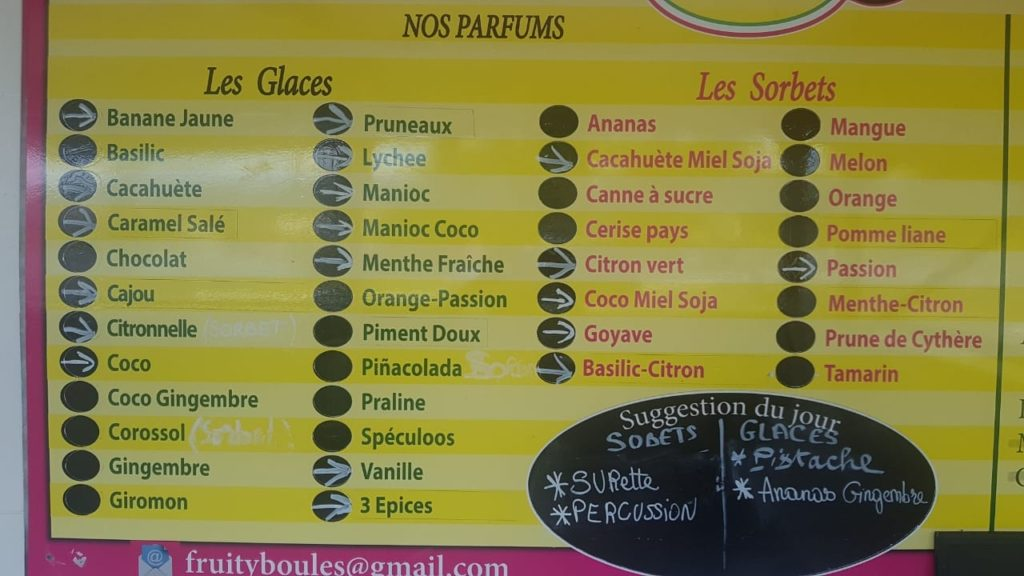 NOS PARFUMS
Les Glaces
Banane Jaune
Basilic
Cacahuète
Caramel Salé
Chocolat
Cajou
Citronnelle (SORBET)
Coco
Coco Gingembre
Corossol (Sorbet)
Gingembre
Giromon
Pruneaux
Lychee
Manioc
Manioc Coco
Menthe Fraîche
Orange-Passion
Piment Doux
Piñacolada
Praline
Spéculoos
Vanille
3 Epices
Les Sorbets
Ananas
Cacahuète Miel Soja
Canne à sucre
Cerise pays
Citron vert
Coco Miel Soja
Goyave
Basilic-Citron
Mangue
Melon
Orange
Pomme liane
Passion
Menthe-Citron
Prune de Cythère
Tamarin
Suggestion du jour
SOBETS
*SURette
*PERCUSSION
GLACES
*Pistache
*Ananas Gingembre
fruityboules@gmail.com